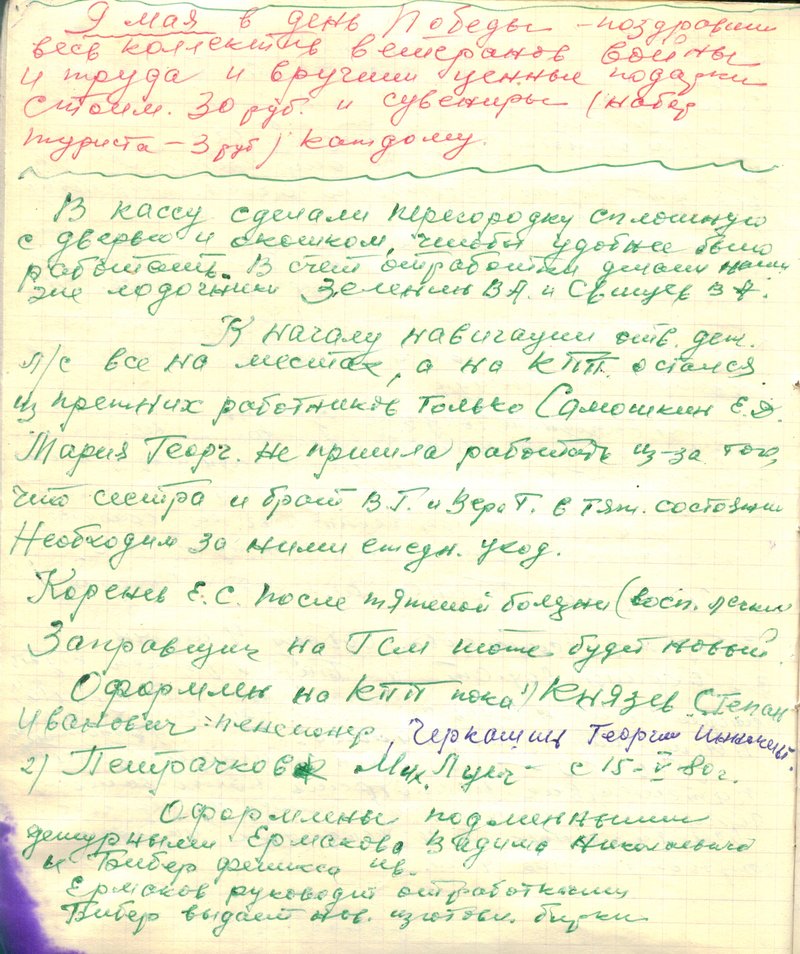 9 мая в день Победы – поздравили
весь коллектив ветеранов войны
и труда и вручили ценные подарки
стоим. 30 руб. и сувениры (набор
туриста – 3 руб) каждому.
В кассу сделали перегородку сплошную
с дверью и окошком, чтобы удобнее было
работать. В счет отработки делали наши
же лодочники Зеленин В.А. и Свищев В.А.
К началу навигации отв. деж.
л/с все на местах, а на КПП остался
из прежних работников только Самошкин Е.Я.
Мария Георг. не пришла работать из-за того,
что сестра и брат В.Г. и Вера Г. в тяж. состоянии
Необходим за ними ежедн. уход.
Коренев Е.С. после тяжелой болезни (восп. легких
Заправщик на ГСМ тоже будет новый.
Оформлен на КПП пока 1) Князев Степан
Иванович – пенсионер, Черкашин Георгий
2) Петрачков Мих. – с 15-V-80 г.
Оформлены подменными
дежурными Ермакова Вадима Николаевича
и Бибер Феликса Ив.
Ермаков руководит отработками
Бибер выдает нов. изготовл. бирки